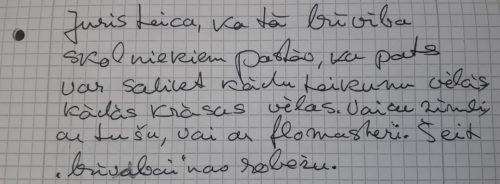 Juris teica, ka tā brīvība
skolniekiem pastāv, ka pats
var salikt kādu teikumu vēlās
kādās krāsas vēlas. Vai ar zīmuli,
ar tušu, vai ar flomasteri. Šeit
"brīvabai" nav robežu.